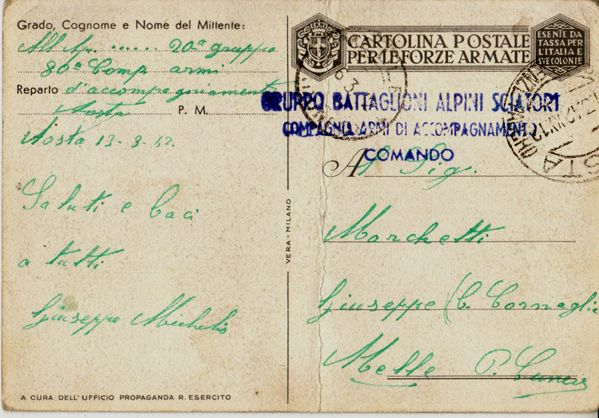 Grado, Cognome e Nome del Mittente:
All. Ap. ...... 20ª gruppo
80ª Comp. armi
Reparto d'accompagnamento
Aosta P. M.
Aosta 13-3-42.
Saluti e baci
a tutti
Giuseppe Michelis
A CURA DELL'UFFICIO PROPAGANDA R. ESERCITO
VERA - MILANO
CARTOLINA POSTALE
PER LE FORZE ARMATE
ESENTE DA
TASSA PER
L'ITALIA E
SVE COLONIE
GRUPPO BATTAGLIONI ALPINI SCIATORI
COMPAGNIA ARMI DI ACCOMPAGNAMENTO
COMANDO
Al Sig.
Marchetti
Giuseppe (C. Cornaglie
Melle P. Cuneo